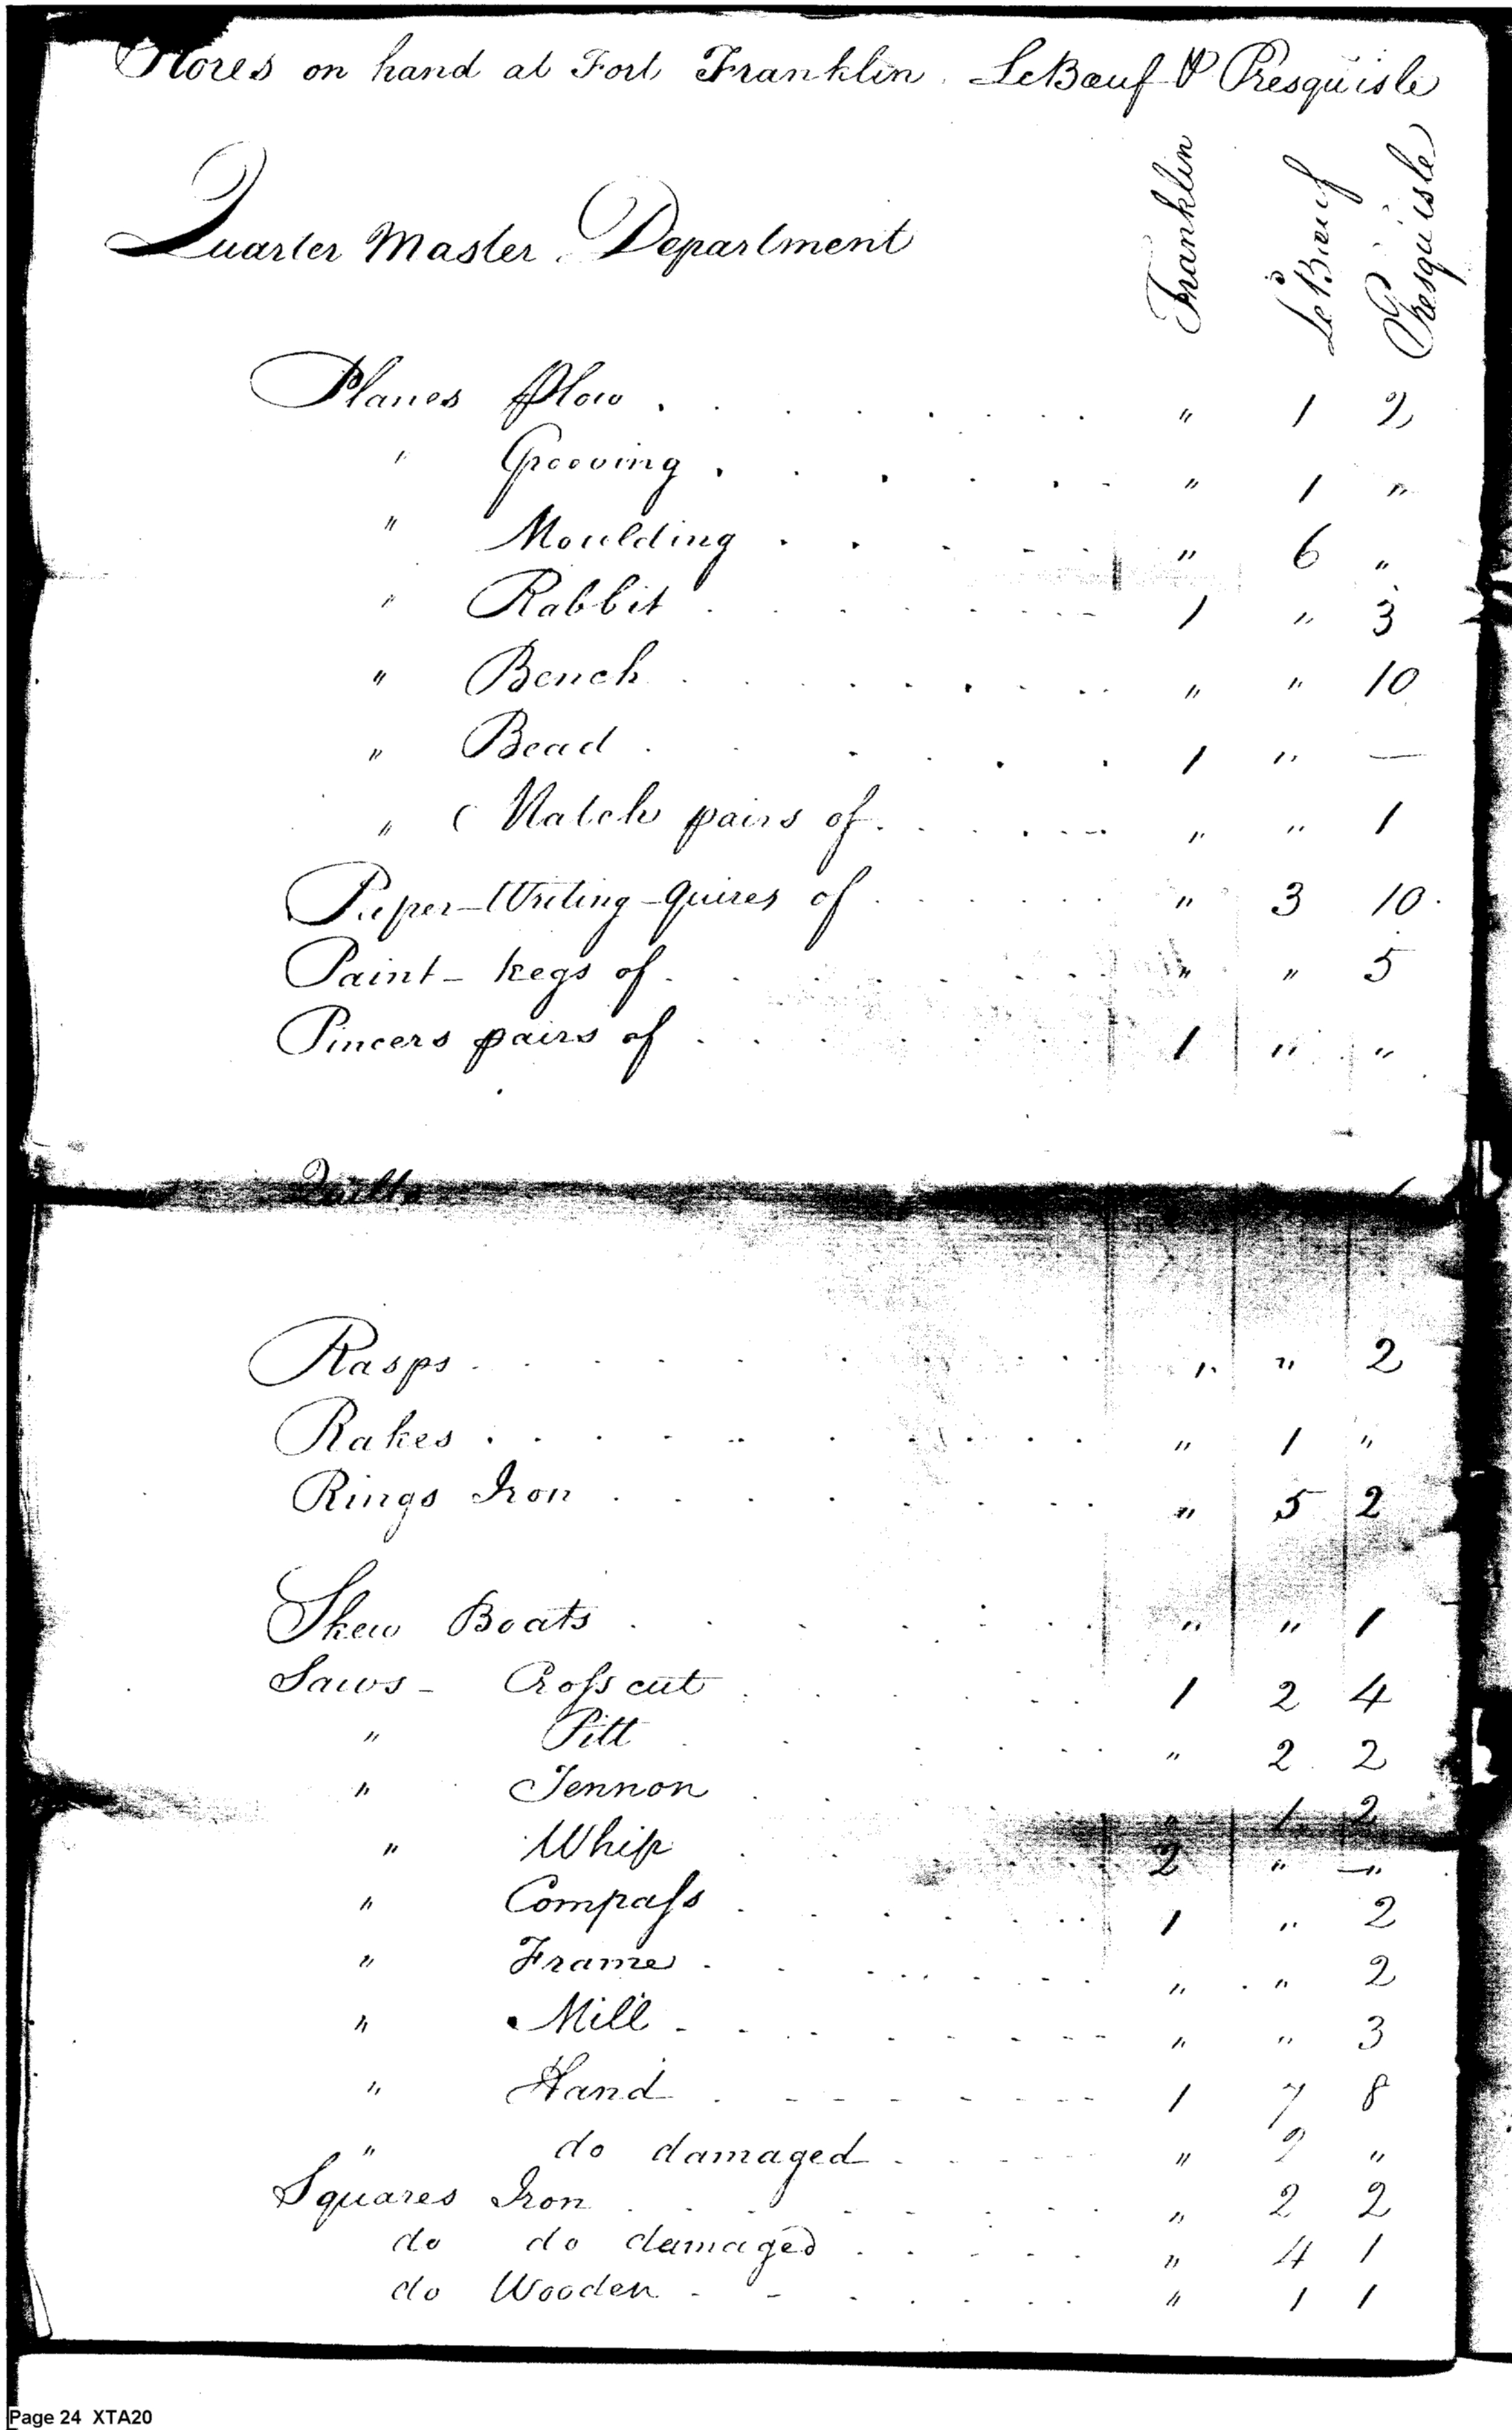 Stores on hand at Fort Franklin. LeBœuf & Presqu'isle
Franklin LeBœuf Presqu'isle
Quarter Master Department
Planes plow . . . . . . . . " 1 2
" Grooving . . . . . . " 1 "
" Moulding . . . . . " 6 "
" Rabbit . . . . . . . 1 " 3
" Bench . . . . . . . . " " 10
" Bead . . . . . . 1 " —
" Match pairs of . . . . . " " 1
Paper-Writing-quires of . . . . . " 3 10
Paint - kegs of . . . . . . . " " 5
Pincers pairs of . . . . . . 1 " "
Quills
Rasps . . . . . . . . " " 2
Rakes . . . . . . . . . " 1 "
Rings Iron . . . . . . . . " 5 2
Skew Boats . . . . . . " " 1
Saws - Croſs cut . . . . . 1 2 4
" Pitt . . . . . " 2 2
" Tennon . . . . " 1 2
" Whip . . . . 2 " "
" Compaſs . . . . . . 1 " 2
" Frame . . . . . . " " 2
" Mill - - - - - - - - " " 3
" Hand . - - - - - - 1 7 8
" do damaged . - - - - " 2 "
Squares Iron . . . . . . " 2 2
do do damaged . . . . . " 4 1
do Wooden - - . . . . " 1 1
Page 24 XTA20